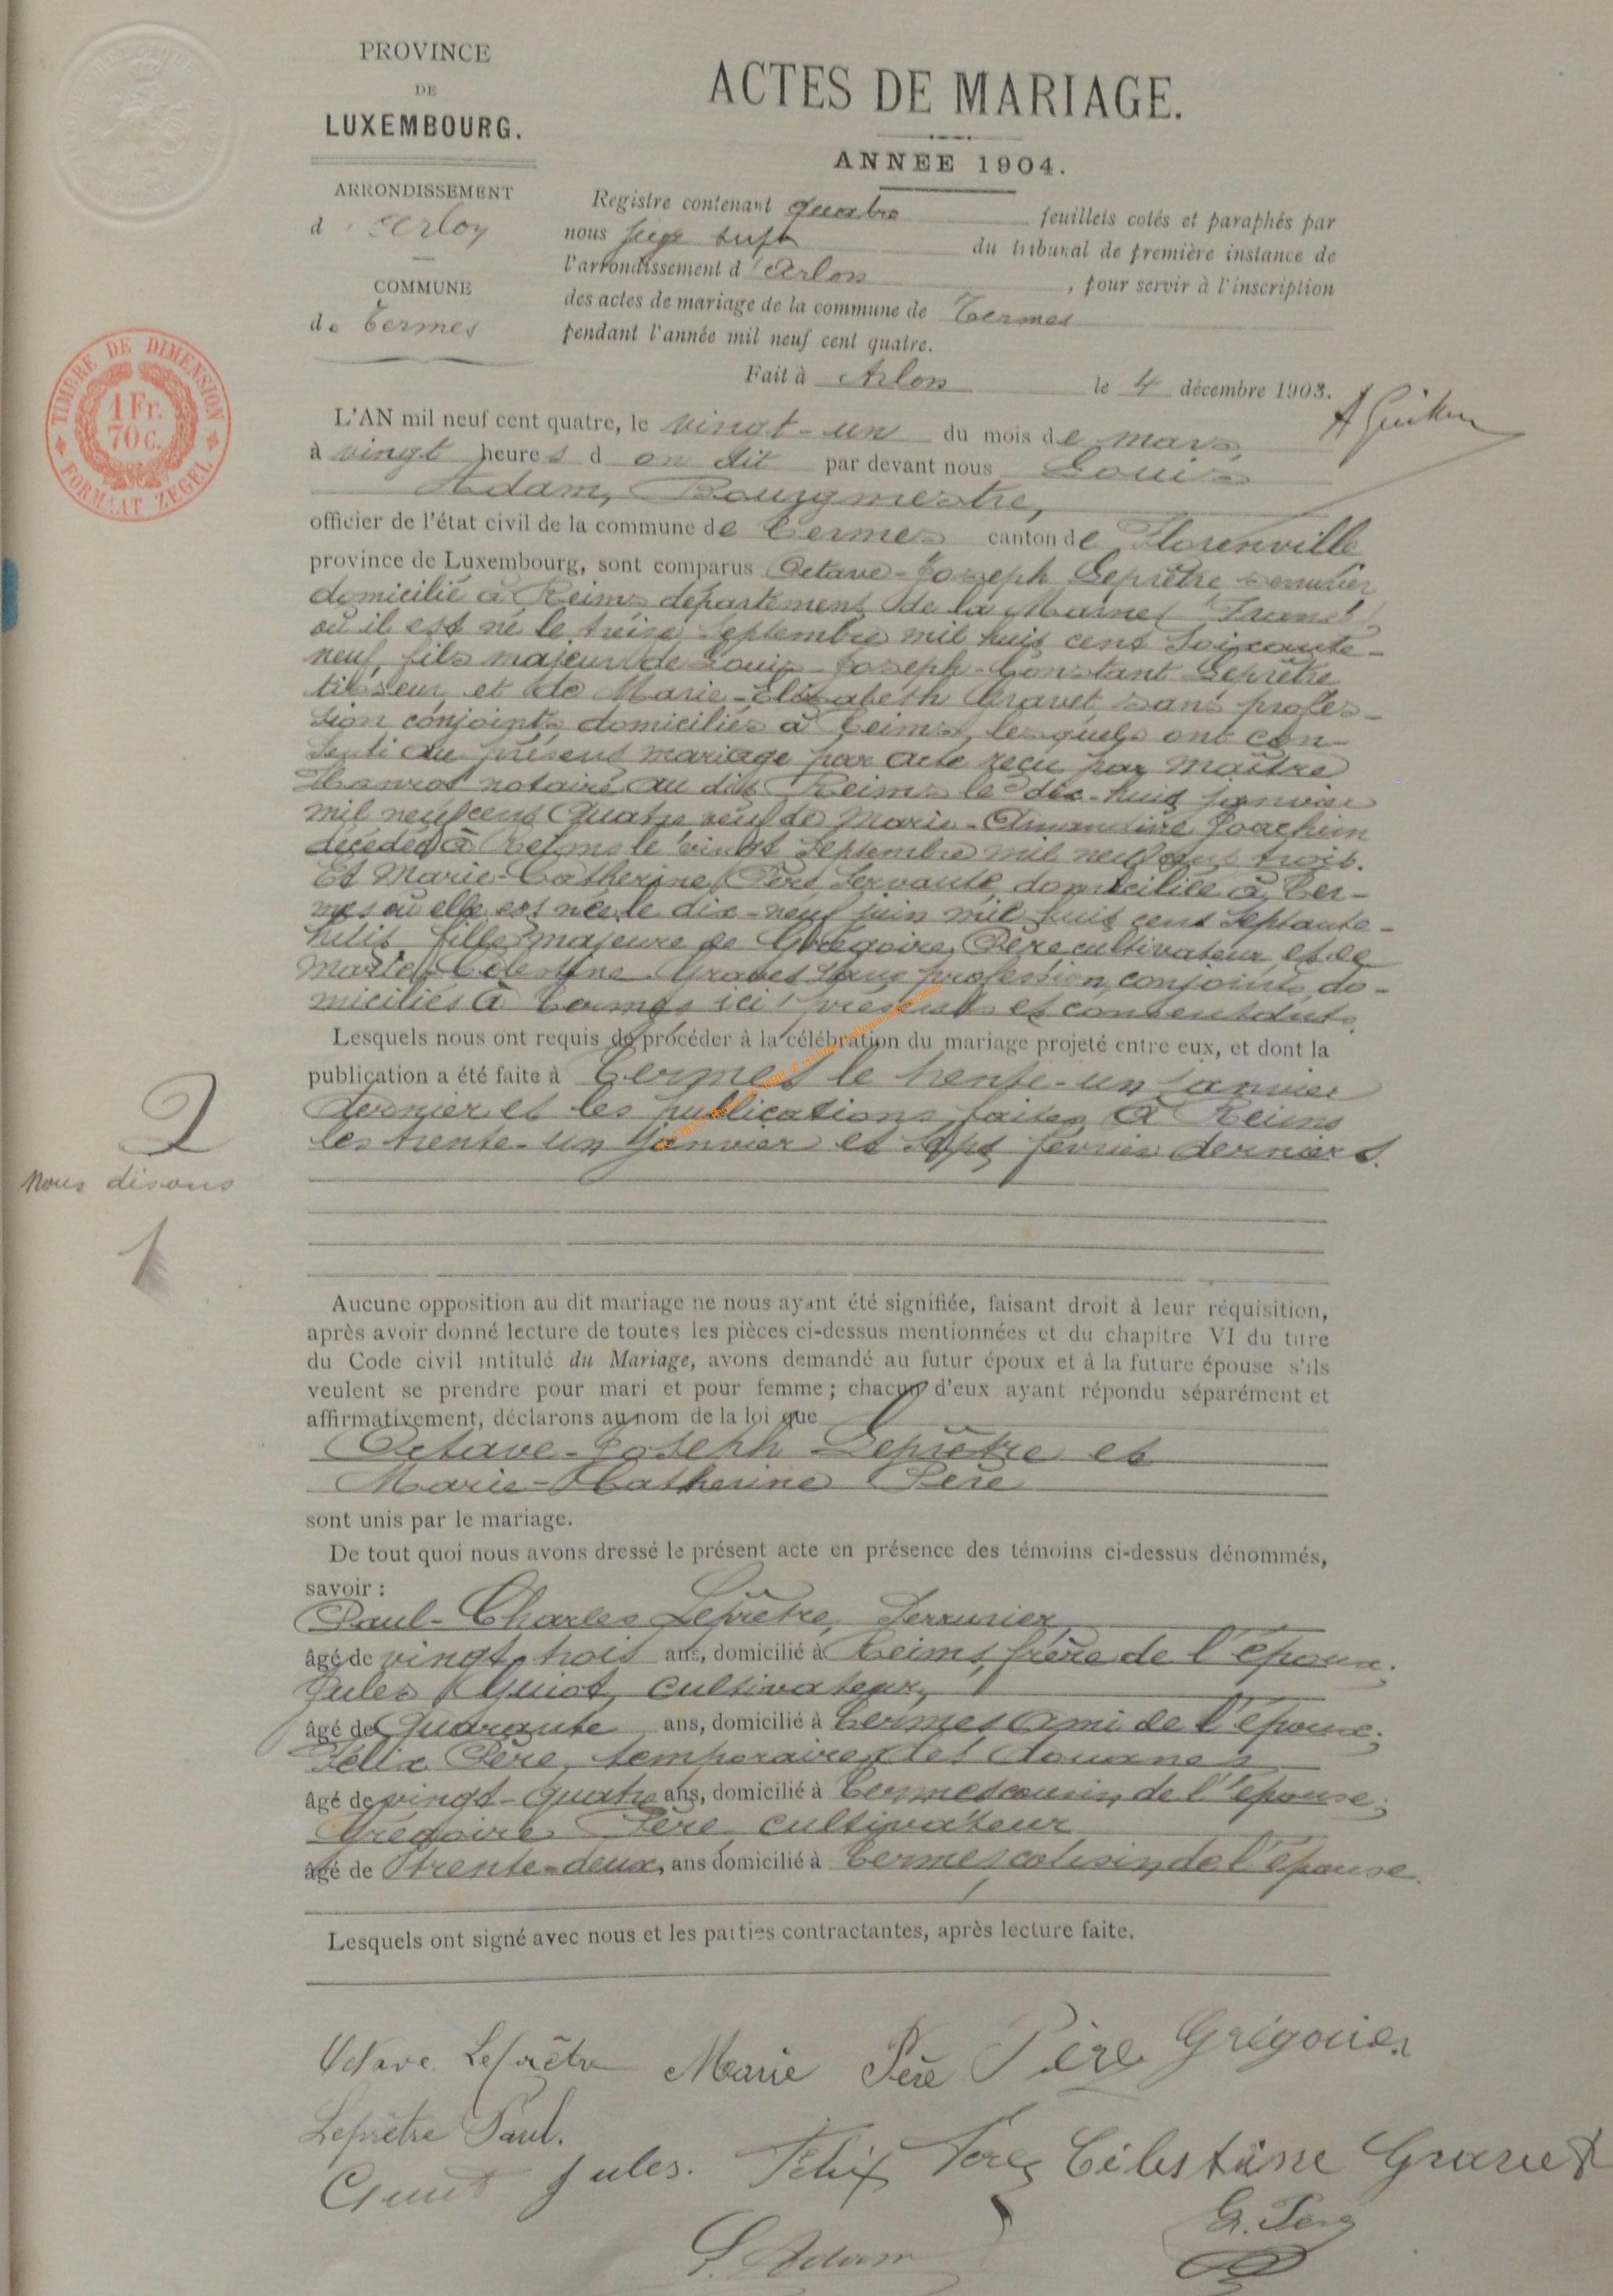 PROVINCE
DE
LUXEMBOURG.
ARRONDISSEMENT
d'Arlon
COMMUNE
de Termes
ACTES DE MARIAGE.
ANNEE 1904.
Registre contenant quatre feuillets cotés et paraphés par
nous juge du tribunal de première instance de
l'arrondissement d'Arlon, pour servir à l'inscription
des actes de mariage de la commune de Termes
pendant l'année mil neuf cent quatre.
Fait à Arlon le 4 décembre 1903.
TIMBRE DE DIMENSION
1 Fr.
70 c.
FORMAAT ZEGEL
L'AN mil neuf cent quatre, le vingt-un du mois de mars,
à vingt heures d on dit par devant nous Louis
Adam, Bourgmestre,
officier de l'état civil de la commune de Termes canton de Florenville
province de Luxembourg, sont comparus Octave-Joseph Leprêtre, serrurier
domicilié à Reims département de la Marne (France),
où il est né le treize Septembre mil huit cent soixante-
neuf, fils majeur de Louis-Joseph-Constant Leprêtre
tisseur et de Marie-Elisabeth Gravet, sans profes-
sion conjoints domiciliés à Reims, lesquels ont con-
senti au présent mariage par acte reçu par Maître
notaire au dit Reims le dix-huit janvier
mil neuf cent quatre, veuf de Marie-Amandine Joachim
décédée à Reims le vingt Septembre mil neuf cent trois.
Et Marie-Catherine Père, Servante, domiciliée à Ter-
mes où elle est née le dix-neuf juin mil huit cent septante-
huit, fille majeure de Grégoire Père cultivateur et de
Marie-Célestine Gravet sans profession, conjoints, do-
miciliés à Termes ici présents et consentants.
Lesquels nous ont requis de procéder à la célébration du mariage projeté entre eux, et dont la
publication a été faite à Termes le trente-un janvier
dernier et les publications faites à Reims
les trente-un janvier et sept février derniers.
2
Nous disons
1
Aucune opposition au dit mariage ne nous ayant été signifiée, faisant droit à leur réquisition,
après avoir donné lecture de toutes les pièces ci-dessus mentionnées et du chapitre VI du titre
du Code civil intitulé du Mariage, avons demandé au futur époux et à la future épouse s'ils
veulent se prendre pour mari et pour femme ; chacun d'eux ayant répondu séparément et
affirmativement, déclarons au nom de la loi que
Octave-Joseph Leprêtre et
Marie-Catherine Père
sont unis par le mariage.
De tout quoi nous avons dressé le présent acte en présence des témoins ci-dessus dénommés,
savoir :
Paul-Charles Leprêtre, Serrurier
âgé de vingt-trois ans, domicilié à Reims, frère de l'époux.
Jules Guiot, cultivateur,
âgé de Quarante ans, domicilié à Termes ami de l'époux;
Félix Père, temporaire des douanes
âgé de vingt-quatre ans, domicilié à Termes cousin de l'épouse;
Grégoire Père cultivateur
âgé de trente-deux, ans domicilié à Termes, cousin de l'épouse.
Lesquels ont signé avec nous et les parties contractantes, après lecture faite.
Octave Leprêtre Marie Père Père Grégoire
Leprêtre Paul.
Guiot Jules. Félix Père Célestine Gravet
G. Père
L. Adam